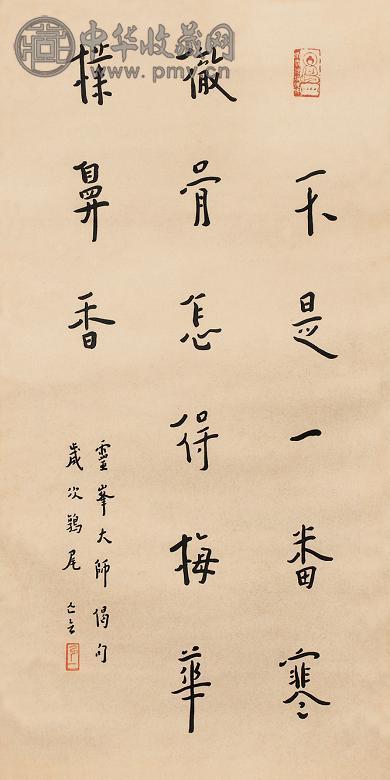 中华收藏网
www.pmy.cn
不是一番寒
徹骨怎得梅華
撲鼻香
靈峯大師偈句
歲次鶉尾 亡言
弘一